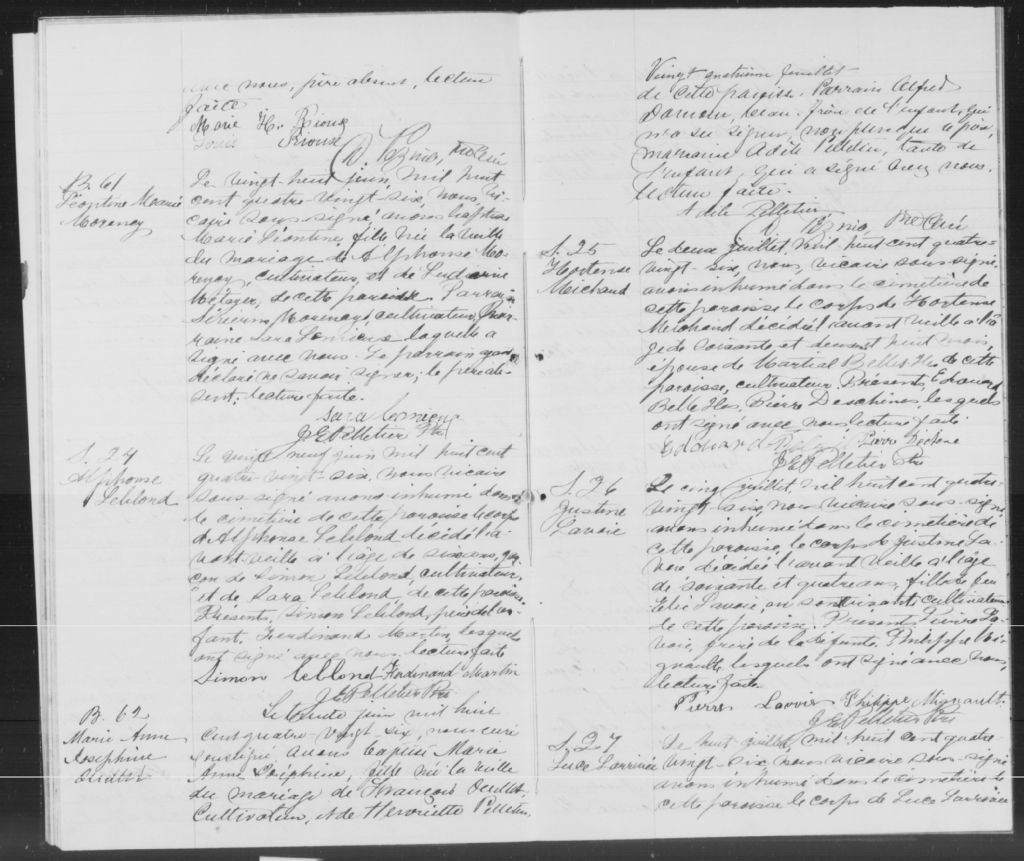 avec nous, père absent, lecture
faite
Marie H. Rioux
Louis Rioux
D. Vézina, Ptre Curé
B. 61
Léontine Marie
Morency
Le vingt-huit juin, mil huit
cent quatre-vingt-six, nous, vi-
caire sous-signé avons baptisé
Marie Léontine, fille née la veille
du mariage de Alphonse Mo-
rency, cultivateur, et de Ludivine
Métayer, de cette paroisse. Parrain
Morency, cultivateur, Mar-
raine Sara Lemieux laquelle a
signé avec nous. Le parrain ayant
déclaré ne savoir signer; le père ab-
sent; lecture faite.
Sara Lemieux
J E Pelletier Ptre
S. 24
Alphonse
Leblond
Le vingt neuf juin mil huit cent
quatre-vingt-six, nous vicaire
sous signé avons inhumé dans
le cimetière de cette paroisse le corps
de Alphonse Leblond décédé l'a-
vant veille à l'âge de six ans, gar-
çon de Simon Leblond, cultivateur,
et de Sara Leblond, de cette paroisse.
Présents, Simon Leblond, père de l'en-
fant, Ferdinand Martin, lesquels
ont signé avec nous, lecture faite
Simon leblond Ferdinand Martin
J E Pelletier Ptre
B. 62
Marie Anne
Josephine
Ouellet
Le trente juin mil huit
Cent quatre-vingt six, nous curé
soussigné avons baptisé Marie
Anne Joséphine, fille née la veille
du mariage de François Ouellet,
Cultivateur, et de Henriette Pelletier,
Vingt quatrième feuillet
de cette paroisse. Parrain Alfred
beau-frère de l'enfant, qui
n'a su signer, non plus que le père,
marraine Adèle Pelletier, tante de
l'enfant, qui a signé avec nous.
Lecture faite.
Adele Pelletier
D. Vézina, Ptre Curé
S. 25
Hortense
Michaud
Le deux juillet, mil huit cent quatre-
vingt-six, nous, vicaire sous-signé
avons inhumé dans le cimetière de
cette paroisse le corps de Hortense
Michaud décédée l'avant veille à l'â-
ge de soixante et deux et huit mois,
épouse de Martial Belles Iles de cette
paroisse, cultivateur. Présents, Edouard
Belles Iles, Pierre Deschênes, lesquels
ont signé avec nous lecture faite
Edouard Pierre Dechene
J E Pelletier Ptre
S. 26
Justine
Lavoie
Le cinq juillet, mil huit cent quatre-
vingt-six, nous vicaire sous-signé
avons inhumé dans le cimetière de
cette paroisse, le corps de Justine La-
voie décédée l'avant veille à l'âge
de soixante et quatre ans, fille de feu
Lavoie, en son vivant, cultivateur
de cette paroisse. Présents, Pierre La-
voie, frère de la défunte, Philippe Mi-
gnault, lesquels ont signé avec nous,
lecture faite.
Pierre Lavoie Philippe Mignault
J E Pelletier Ptre
S. 27
Luce Larrivée
Le huit juillet, mil huit cent quatre-
vingt-six nous vicaire sous-signé
avons inhumé dans le cimetière de
cette paroisse le corps de Luce Larrivée